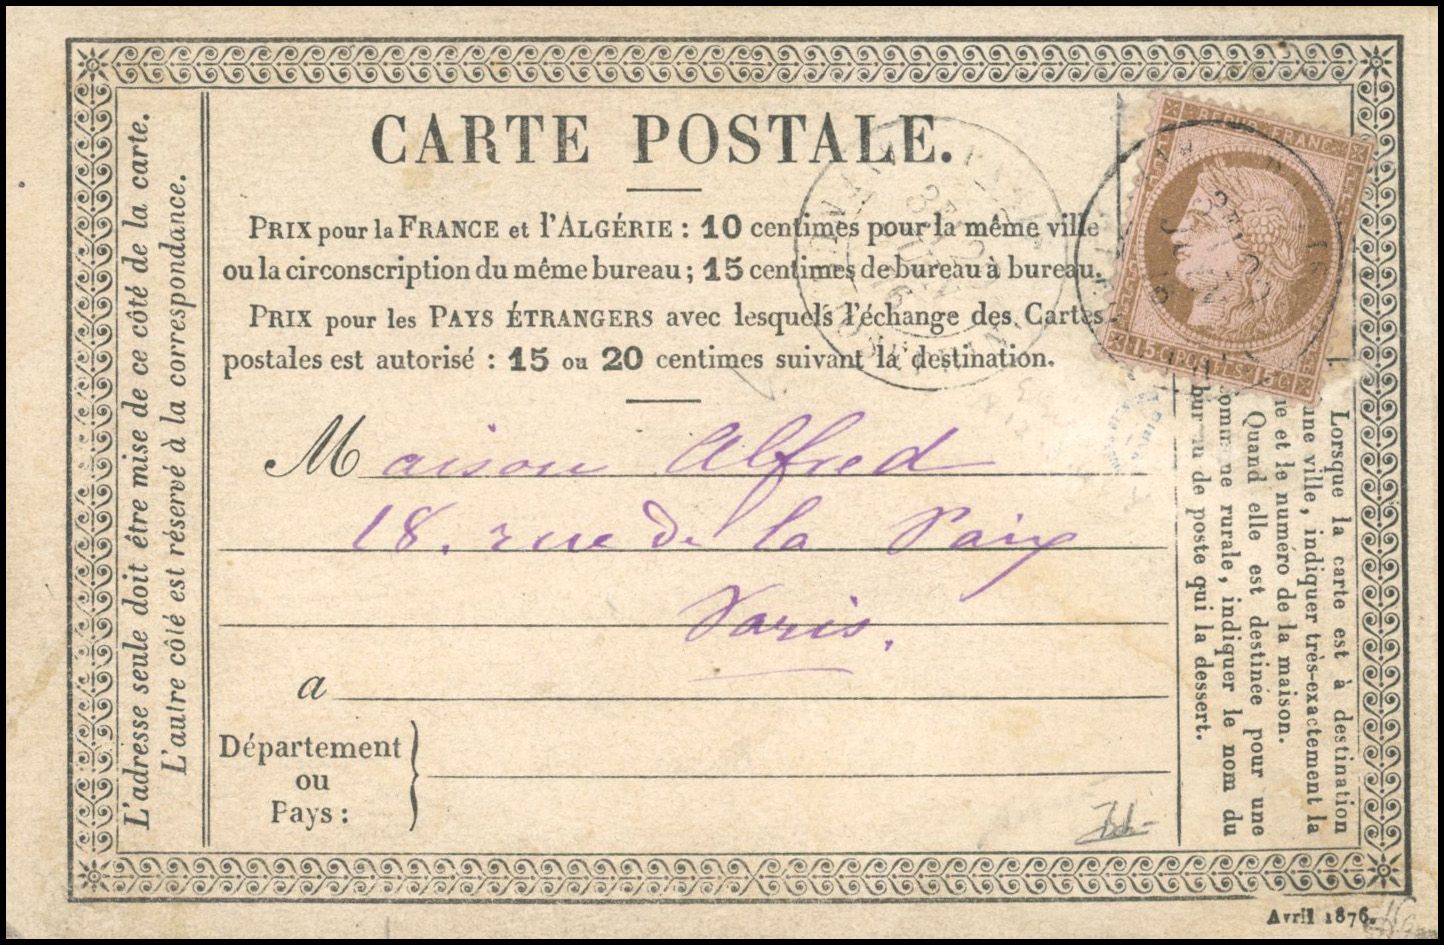 CARTE POSTALE.
PRIX pour la FRANCE et l'ALGÉRIE : 10 centimes pour la même ville
ou la circonscription du même bureau ; 15 centimes de bureau à bureau.
PRIX pour les PAYS ÉTRANGERS avec lesquels l'échange des Cartes
postales est autorisé : 15 ou 20 centimes suivant la destination.
Maison Alfred
18. rue de la Paix
Paris.
a
Département
ou
Pays :
L'adresse seule doit être mise de ce côté de la carte.
L'autre côté est réservé à la correspondance.
Lorsque la carte est à destination
une ville, indiquer très-exactement la
et le numéro de la maison.
Quand elle est destinée pour une
comm ne rurale, indiquer le nom du
bur u de poste qui la dessert.
FRANC
15 C POSTES 15 C
Avril 1876.